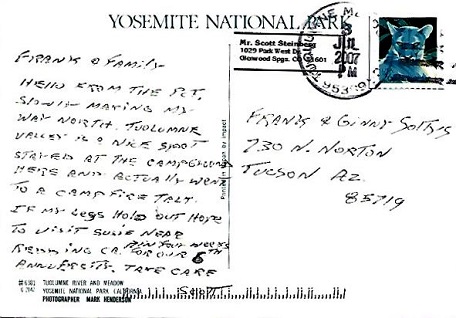 YOSEMITE NATIONAL PARK
Mr. Scott Steinberg
1029 Park West Dr.
Glenwood Spgs. CO 81601
3
JUL
2007
PM
FRANK & FAMILY
HELLO FROM THE PCT.
SLOWLY MAKING MY
WAY NORTH. TUOLUMNE
VALLEY IS A NICE SPOT
STAYED AT THE CAMPGROUND
HERE AND ACTUALLY WENT
TO A CAMP FIRE TALK.
IF MY LEGS HOLD OUT HOPE
TO VISIT SUSIE NEAR
REDDING CA. IN FOUR WEEKS
FOR OUR 6TH
ANNIVERSITY. TAKE CARE
SCOTT
FRANK & GINNY
730 N. NORTON
TUCSON AZ.
85719
Printed in by Impact
TUOLUMNE RIVER AND MEADOW
YOSEMITE NATIONAL PARK CALIFORNIA
PHOTOGRAPHER MARK HENDERSON